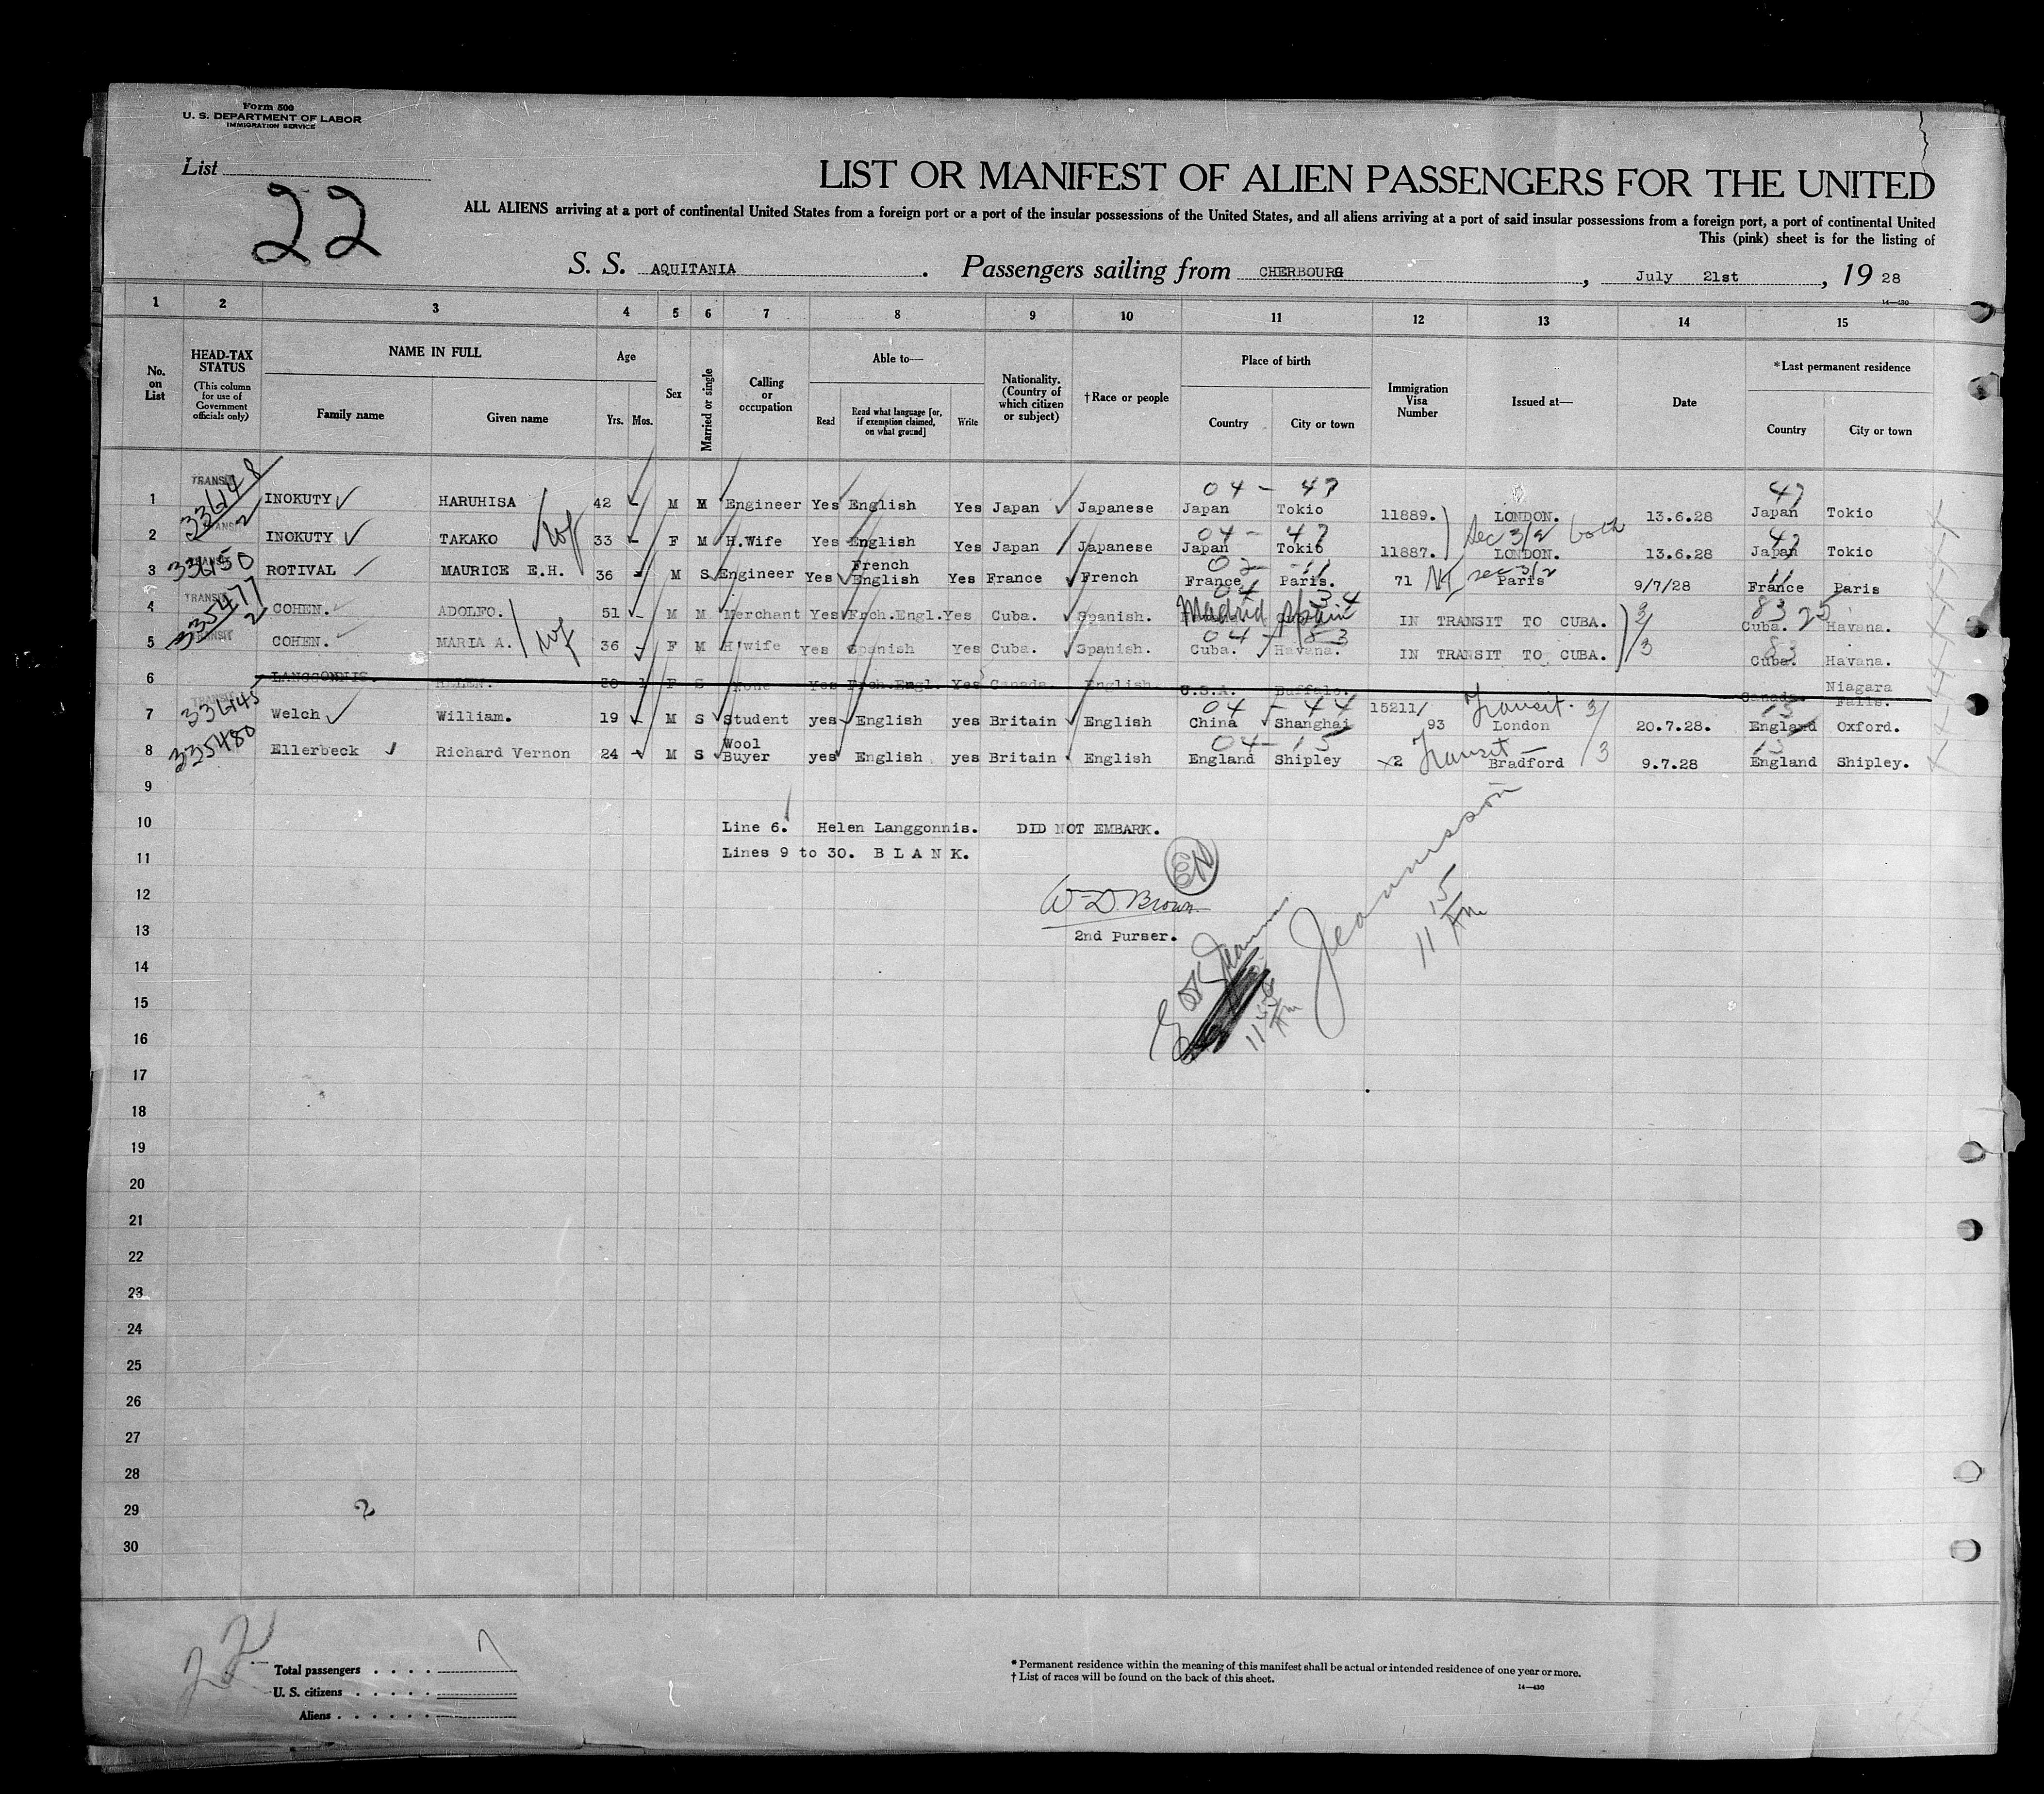 Form 500
U. S. DEPARTMENT OF LABOR
IMMIGRATION SERVICE
List
22
LIST OR MANIFEST OF ALIEN PASSENGERS FOR THE UNITED
ALL ALIENS arriving at a port of continental United States from a foreign port or a port of the insular possessions of the United States, and all aliens arriving at a port of said insular possessions from a foreign port, a port of continental United
This (pink) sheet is for the listing of
S. S. AQUITANIA . Passengers sailing from CHERBOURG , July 21st , 19 28
14—430
1 2 3 4 5 6 7 8 9 10 11 12 13 14 15
No. on List
HEAD-TAX STATUS
(This column for use of Government officials only)
NAME IN FULL
Family name Given name
Age
Yrs. Mos.
Sex
Married or single
Calling or occupation
Able to—
Read
Read what language [or, if exemption claimed, on what ground]
Write
Nationality. (Country of which citizen or subject)
†Race or people
Place of birth
Country City or town
Immigration Visa Number
Issued at—
Date
*Last permanent residence
Country City or town
TRANSIT 04 - 47 47
1 336148/2 INOKUTY HARUHISA 42 M M Engineer Yes English Yes Japan Japanese Japan Tokio 11889. LONDON. 13.6.28 Japan Tokio
wf 04 - 47 Sec 3/2 both 47
2 INOKUTY TAKAKO 33 F M H.Wife Yes English Yes Japan Japanese Japan Tokio 11887. LONDON. 13.6.28 Japan Tokio
3 336150 ROTIVAL MAURICE E.H. 36 M S Engineer Yes French English Yes France French France Paris. 71 sec 3/2 Paris 9/7/28 France Paris
TRANSIT 04 34
4 335477/2 COHEN. ADOLFO. 51 M M Merchant Yes Frch.Engl. Yes Cuba. Spanish. Madrid Spain IN TRANSIT TO CUBA. 3/3 83 25 Cuba. Havana.
TRANSIT wf 04 - 83 83
5 COHEN. MARIA A. 36 F M H'wife Yes Spanish Yes Cuba. Spanish. Cuba. Havana. IN TRANSIT TO CUBA. Cuba. Havana.
6 LANGGONNIS. HELEN. 20 F S None Yes Frch.Engl. Yes Canada. English. U.S.A. Buffalo. Canada. Niagara Falls.
TRANSIT 04 - 44 Transit. 3/3 15
7 336145 Welch William. 19 M S Student yes English yes Britain English China Shanghai 15211/93 London 20.7.28. England Oxford.
04 - 15 Transit 15
8 335480 Ellerbeck Richard Vernon 24 M S Wool Buyer yes English yes Britain English England Shipley 2 Bradford 9.7.28 England Shipley.
9
10 Line 6. Helen Langgonnis. DID NOT EMBARK.
11 Lines 9 to 30. B L A N K.
12 W D Brown
13 2nd Purser.
Jeannisson
11 15 Am
14
15
16
17
18
19
20
21
22
23
24
25
26
27
28
29 2
30
22
Total passengers . . . . 7
U. S. citizens . . . . .
Aliens . . . . . .
* Permanent residence within the meaning of this manifest shall be actual or intended residence of one year or more.
† List of races will be found on the back of this sheet.
14—430